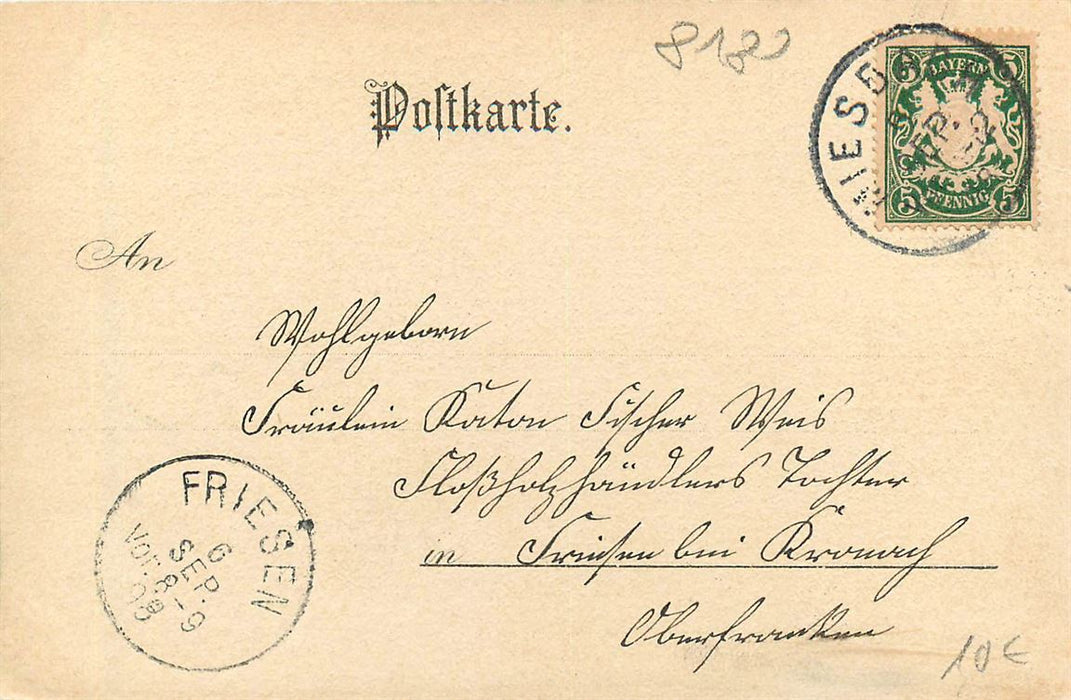 8182
Postkarte.
BAYERN
5 5
5 5
PFENNIG
SEP.
An
Wohlgeborn
Fräulein Katon Fischer Weis
Floßholzhändlers Tochter
in Friesen bei Kronach
Oberfranken
FRIESEN
6
SEP. 9
VOR. 8-9
10€